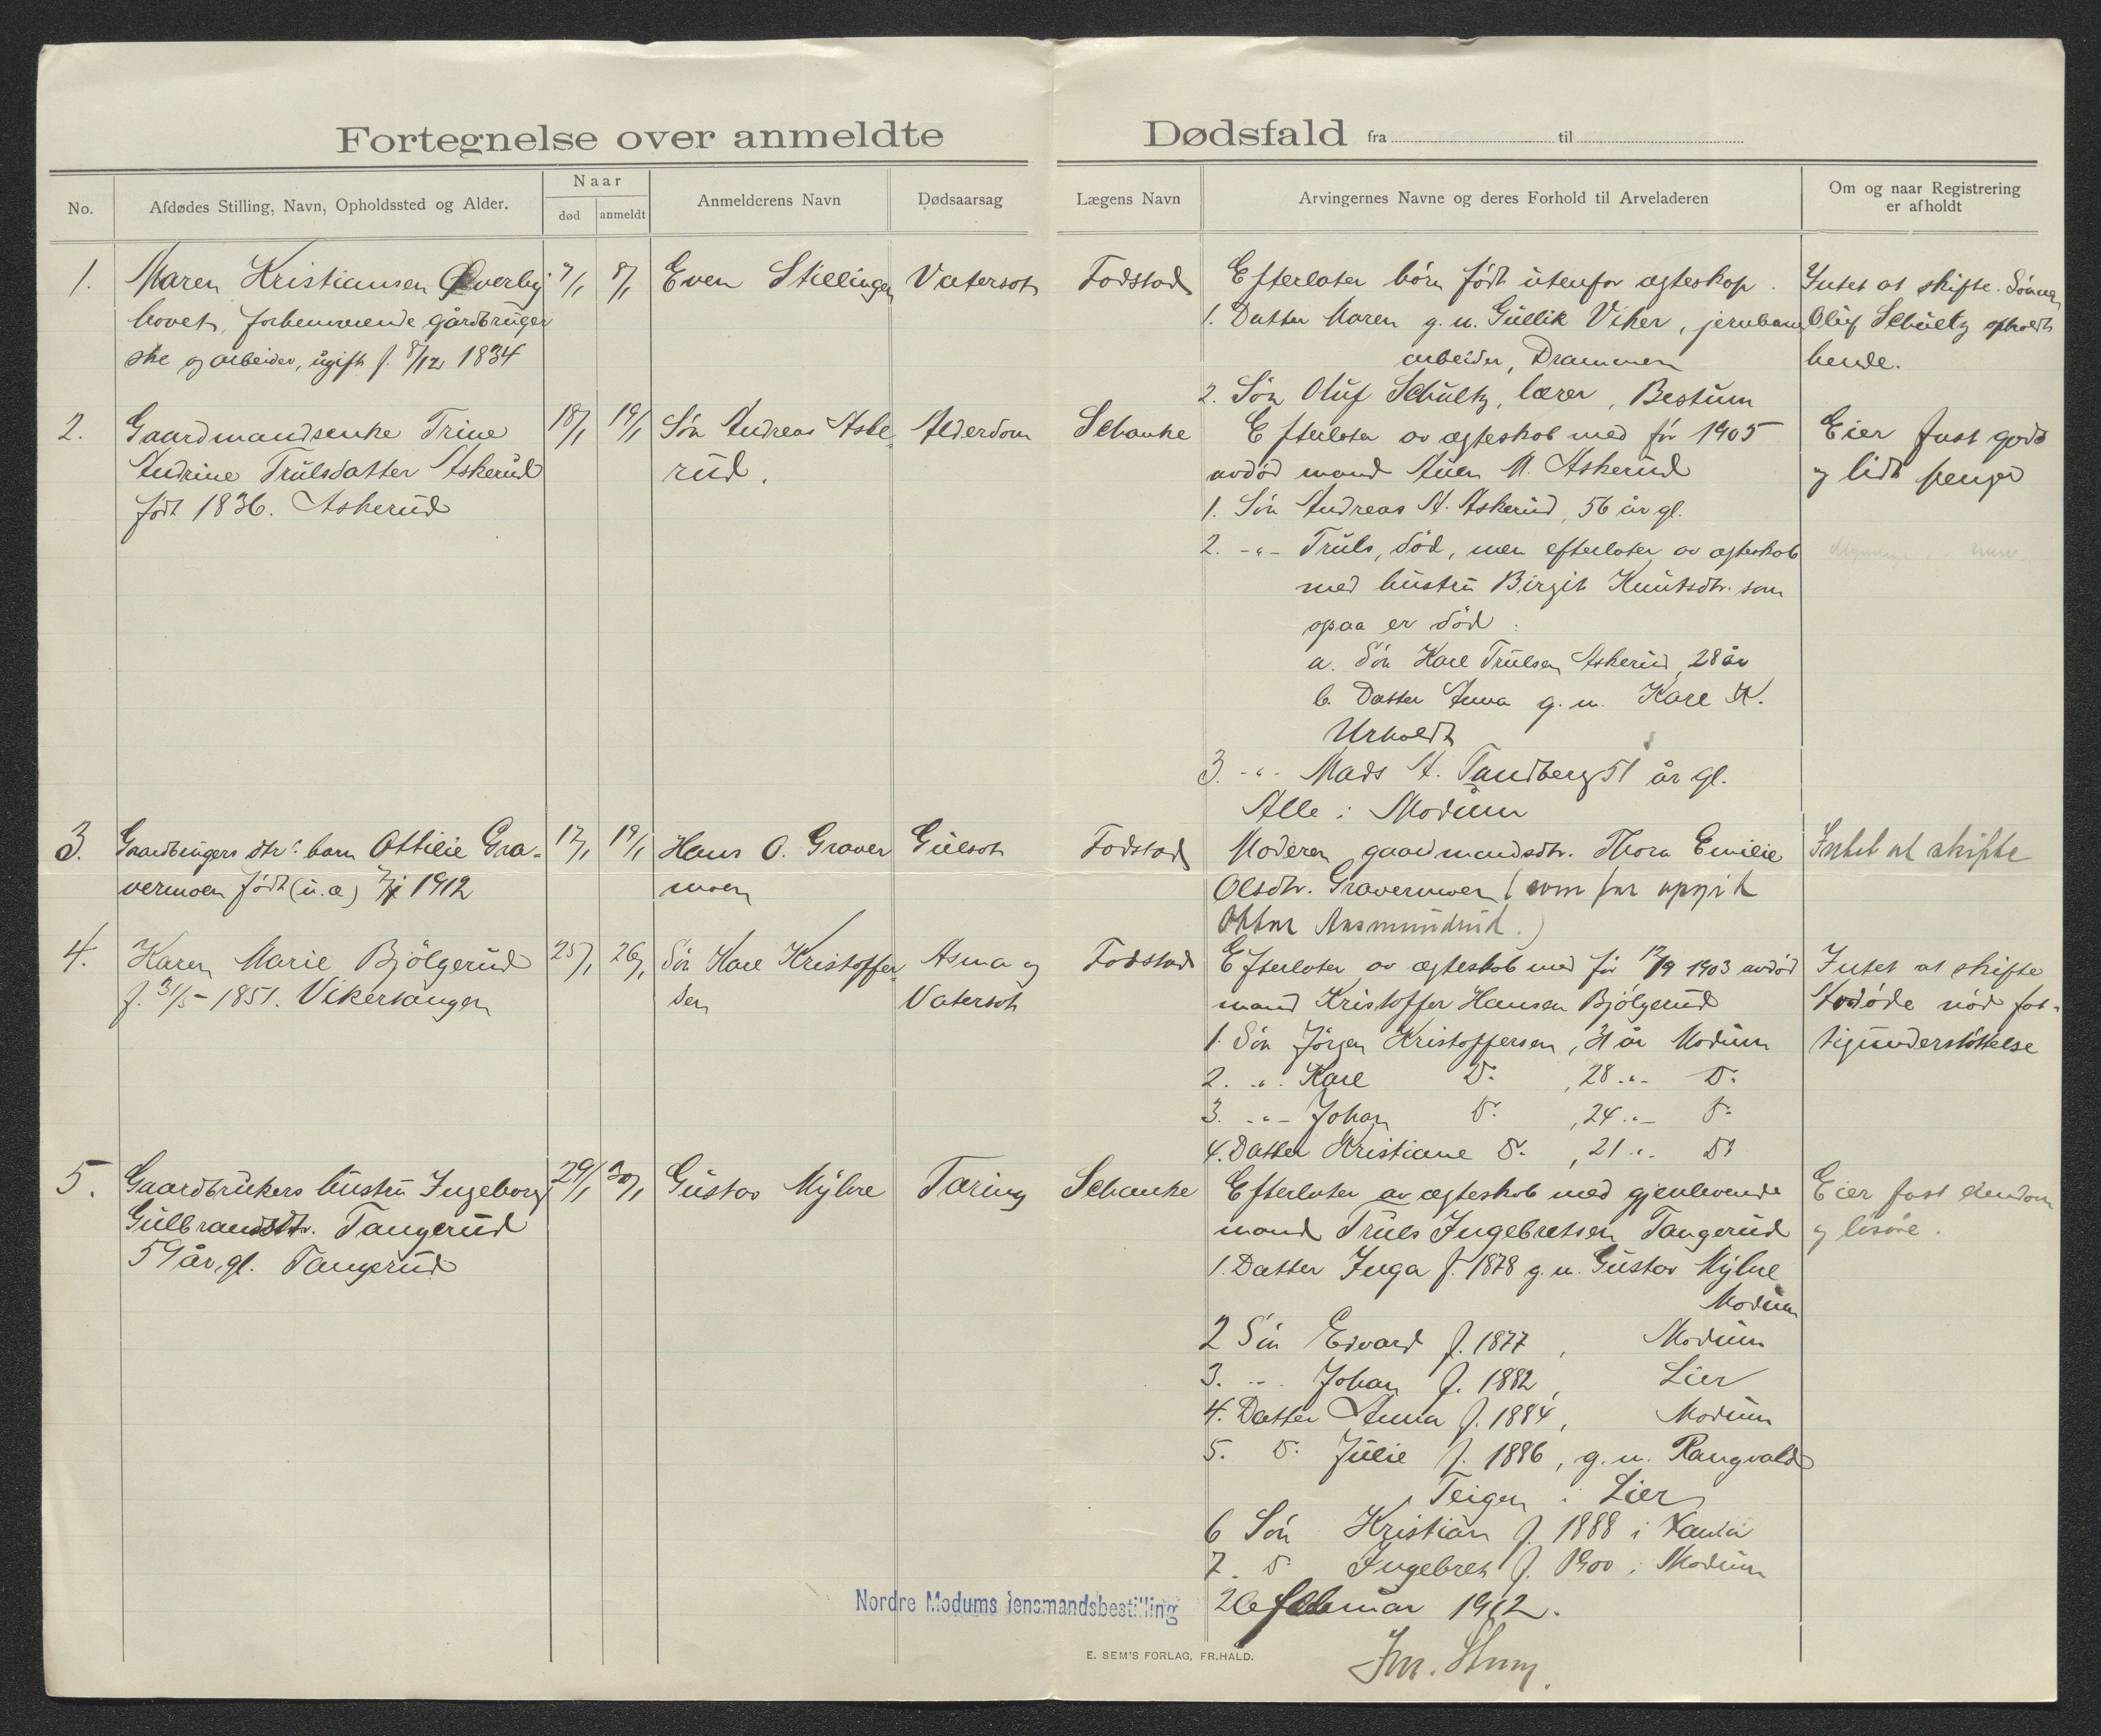 Fortegnelse over anmeldte Dødsfald fra til
No.
Afdødes Stilling, Navn, Opholdssted og Alder.
Naar
død
anmeldt
Anmelderens Navn
Dødsaarsag
Lægens Navn
Arvingernes Navne og deres Forhold til Arveladeren
Om og naar Registrering
er afholdt
1.
Maren Kristiansen Øverby
hovet, forhenværende gårdbruger
ske og arbeider, ugift f. 8/12 1834
7/1
8/1
Even Stillingen
Vatersot
Fodstad
Efterlater börn födt utenfor ægteskap.
1. Datter Maren g. m. Gullik Viker, jernbane
arbeider, Drammen
2. Sön Oluf Schultz, lærer, Bestum
Intet at skifte. Sönnen
Oluf Schultz opholdt
hende.
2.
Gaardmandsenke Trine
Andrine Trulsdatter Askerud
född 1836. Askerud
18/1
19/1
Sön Andreas Aske
rud.
Alderdom
Schanke
Efterlater av ægteskab med för 1905
avdöd mand Auen M. Askerud
1. Sön Andreas A. Askerud, 56 år gl.
2. -"- Truls, död, men efterlater av ægteskab
med hustru Birgit Knutsdtr. som
ogsaa er död:
a. Sön Karl Trulsen Askerud, 28 år
b. Datter Anna g. m. Karl K.
Urholdt
3. -"- Mads A. Tandberg 51 år gl.
Alle i Modum
Eier fast gods
og lidt penge
3.
Gaardbrugers dtr's barn Ottilie Gra-
vermoen födt (u.æ) 7/1 1912
17/1
19/1
Hans O. Graver
moen
Gulsot
Fodstad
Moderen gaardmandsdtr. Thora Emilie
Olsdtr. Gravermoen (som far opgit
Ottar Aasmundrud.)
Intet at skifte
4.
Karen Marie Bjölgerud
f. 31/5-1851. Vikersangen
25/1
26/1
Sön Karl Kristoffer
sen
Asma og
Vatersot
Fodstad
Efterlater av ægteskab med för 12/9 1903 avdöd
mand Kristoffer Hansen Bjölgerud
1. Sön Jörgen Kristoffersen, 31 år Modum
2. -"- Karl D: , 28 -"- D:
3. -"- Johan D: , 24 -"- D:
4. Datter Kristiane D: , 21 -"- D:
Intet at skifte
Avdöde nöd fat-
tigunderstöttelse
5.
Gaardbrukers hustru Ingeborg
Gulbrandsdtr. Tangerud
59 år gl. Tangerud
29/1
30/1
Gustav Mylre
Tæring
Schanke
Efterlater av ægteskab med gjenlevende
mand Truls Ingebretsen Tangerud
1. Datter Inga f. 1878 g. m. Gustav Mylre
Modum
2 Sön Edvard f. 1877, Modum
3. -"- Johan f. 1882, Lier
4. Datter Anna f. 1884, Modum
5. D: Julie f. 1886, g. m. Rangvald
Teigen i Lier
6 Sön Kristian f. 1888 i
7. D: Ingebret f. 1900 i Modum
Eier fast eiendom
og lösöre.
Nordre Modums lensmandsbestilling
26 februar 1912.
E. SEM'S FORLAG, FR.HALD.